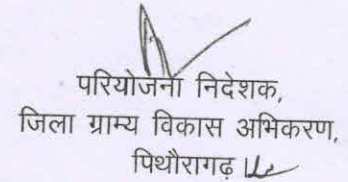 परियोजना निदेशक,
जिला ग्राम्य विकास अभिकरण,
पिथौरागढ़।